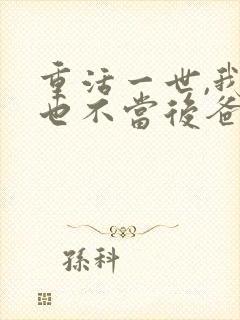 重活一世,我
也不當後爸
孫科